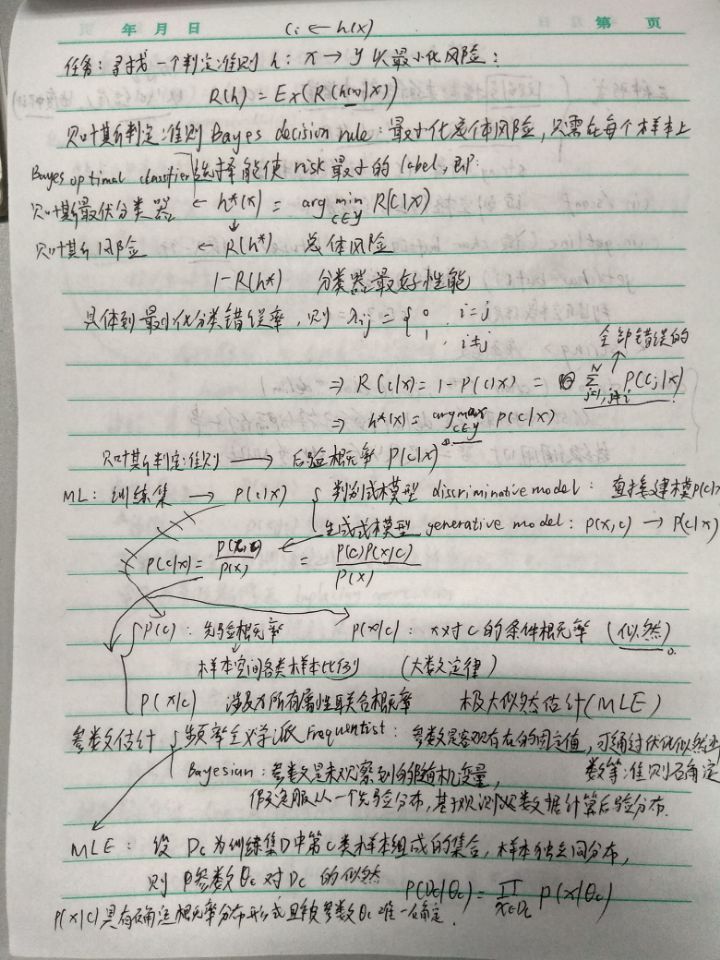 年 月 日 第 页
Ci ← h(x)
任务: 寻找一个判定准则 h: x → y 以最小化风险:
R(h) = Ex(R(h(x)|x))
贝叶斯判定准则 Bayes decision rule: 最小化总体风险, 只需在每个样本上
Bayes optimal classifier 选择能使 risk 最小的 label, 即:
贝叶斯最优分类器 ← h*(x) = arg min c∈y R(c|x)
贝叶斯风险 ← R(h*) 总体风险
1-R(h*) 分类器最好性能
具体到最小化分类错误率, 则 λij = { 0, i=j
1, i≠j
全部错误的
⇒ R(c|x) = 1-P(c|x) = Σ N j=1, j≠i P(cj|x)
⇒ h*(x) = argmax c∈y P(c|x)
贝叶斯判定准则 → 后验概率 P(c|x)
ML: 训练集 → P(c|x) { 判别式模型 discriminative model: 直接建模P(c|x)
生成式模型 generative model: P(x,c) → P(c|x)
P(c|x) = P(x,c) / P(x) = P(c)P(x|c) / P(x)
P(c): 先验概率 P(x|c): x对c的条件概率 (似然)
样本空间各类样本比例 (大数定律)
P(x|c) 涉及为所有属性联合概率 极大似然估计(MLE)
参数估计 { 频率主义学派 Frequentist: 参数是客观存在的固定值, 可通过优化似然函
数等准则确定
Bayesian: 参数是未观察到的随机变量,
假定服从一个先验分布, 基于观测数据计算后验分布.
MLE: 设 Dc 为训练集D中第c类样本组成的集合, 样本独立同分布,
则 参数 θc 对 Dc 的似然 P(Dc|θc) = Π x∈Dc P(x|θc)
P(x|c) 具有确定概率分布形式且被参数 θc 唯一确定.